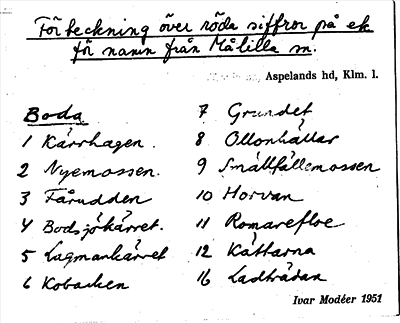 Förteckning över röda siffror på ek
för namn från Målilla sn.
Aspelands hd, Klm. l.
Boda
1 Kärrhagen.
2 Nyemossen.
3 Fårudden
4 Bodsjökärret.
5 Lagmankärret
6 Kobacken
7 Grundet
8 Ollonhällar
9 Smällfällemossen
10 Horvan
11 Romarefloe
12 Kättarna
16 Ladträdan
Ivar Modéer 1951